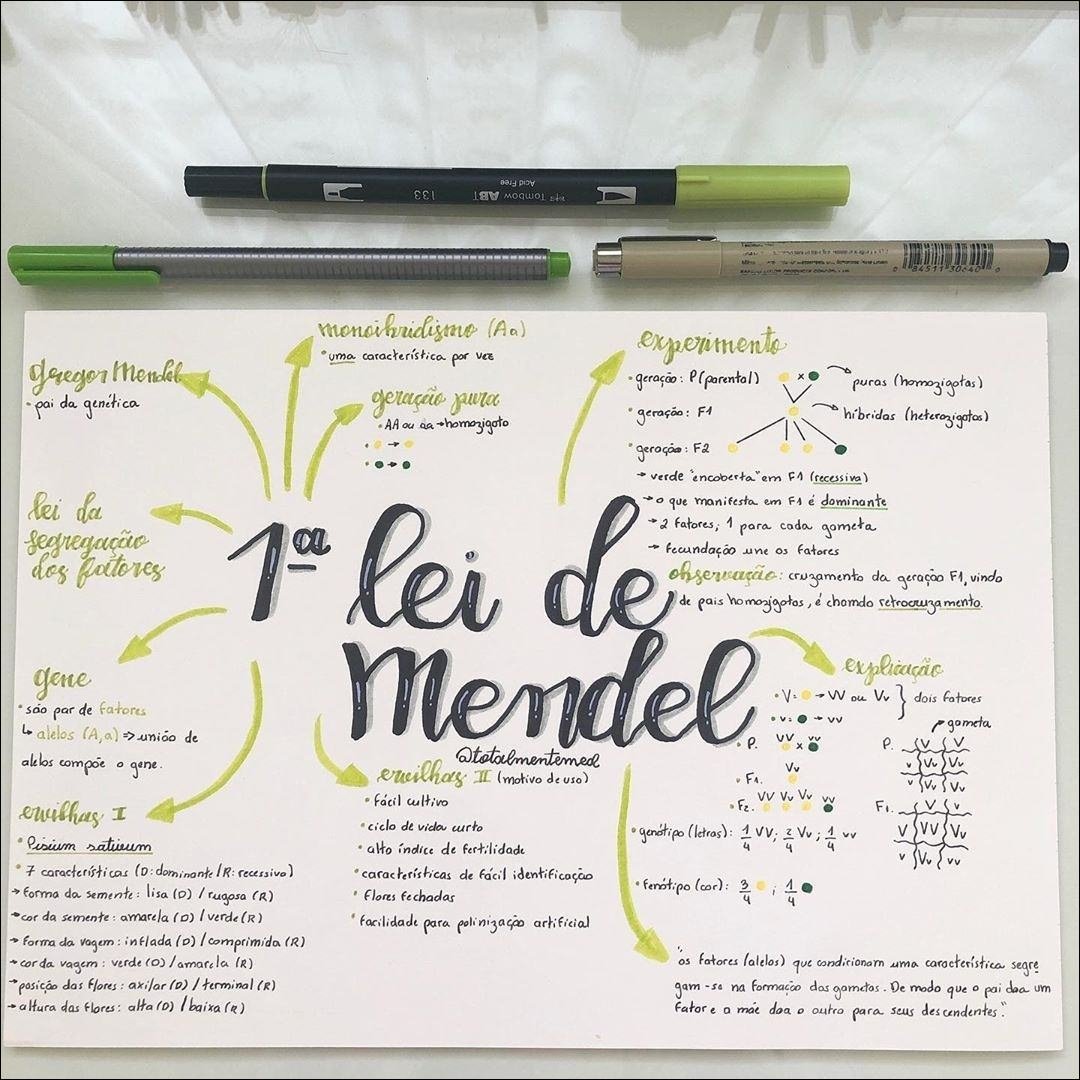 Tombow ABT
133
Acid Free
84511 30640
monoibridismo (Aa)
• uma característica por vez
gregor Mendel
• pai da genética
geração pura
• AA ou aa → homozigoto
experimento
• geração: P (parental) x → puras (homozigotas)
• geração: F1 → híbridas (heterozigotos)
• geração: F2
→ verde "encoberta" em F1 (recessiva)
→ o que manifesta em F1 é dominante
→ 2 fatores; 1 para cada gameta
→ fecundação une os fatores
observação: cruzamento da geração F1, vindo
de pais homozigotas, é chamdo retrocruzamento.
lei da
segregação
dos fatores
1ª lei de
Mendel
@totalmentemed
gene
• são par de fatores
↳ alelos (A,a) => união de
alelos compõe o gene.
ervilhas I
• Pisium sativeum
• 7 características (D: dominante / R: recessivo)
→ forma da semente: lisa (D) / rugosa (R)
→ cor da semente: amarela (D) / verde (R)
→ forma da vagem: inflada (D) / comprimida (R)
→ cor da vagem: verde (D) / amarela (R)
→ posição das flores: axilar (D) / terminal (R)
→ altura das flores: alta (D) / baixa (R)
ervilhas II (motivo de uso)
• fácil cultivo
• ciclo de vida curto
• alto índice de fertilidade
• características de fácil identificação
• Flores fechadas
• facilidade para polinização artificial
explicação
• V = → VV ou Vv } dois fatores
• v = → vv
gameta
• P. VV x vv
• F1. Vv
• F2. VV Vv Vv vv
P. V V
v Vv Vv
v Vv Vv
F1. V v
V VV Vv
v Vv vv
• genótipo (letras): 1/4 VV; 2/4 Vv; 1/4 vv
• fenótipo (cor): 3/4 ; 1/4
"os fatores (alelos) que condicionam uma característica segre
gam-se na formação das gametas. De modo que o pai doa um
fator e a mãe doa o outro para seus descendentes."